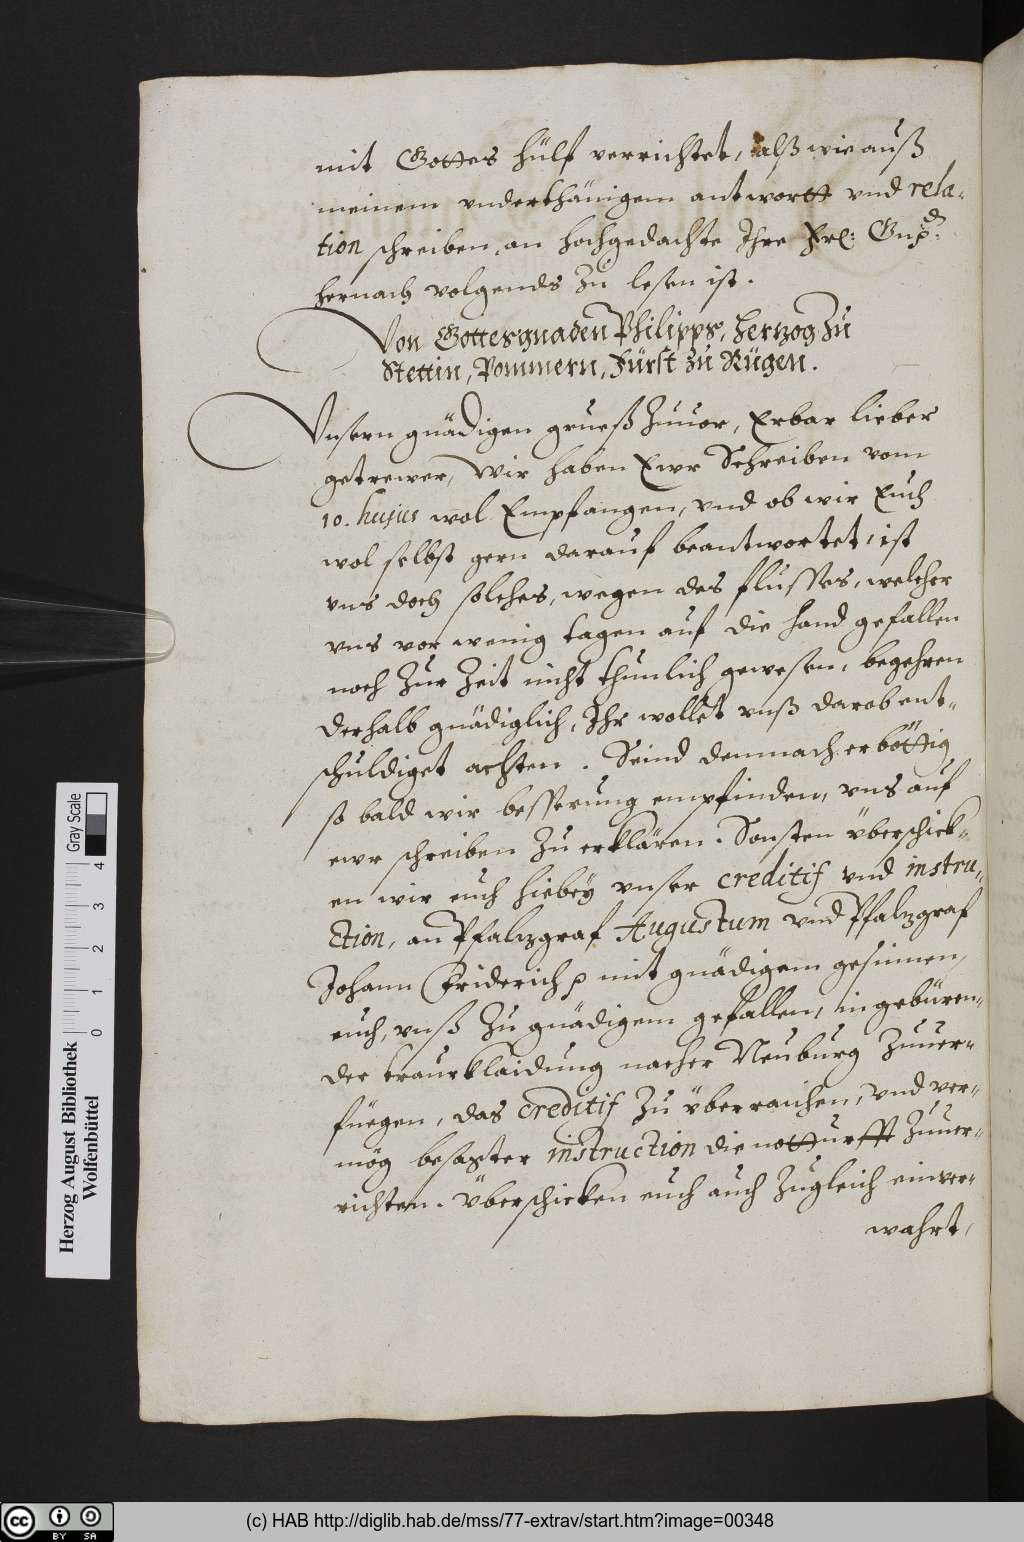 mit Gottes hülf verrichtet, alß wie auß
meinem underthänigem antwortt vnd rela-
tion schreiben, an hochgedachte Ihre Frl: Gnd:
hernach volgends zu lesen ist.
Von Gottes gnaden Philipps, Hertzog zu
Stettin, Pommern, Fürst zu Rügen.
Vnsern gnädigen grueß zuuor, Erbar lieber
getrewer, Wir haben Ewr Schreiben vom
10. hujus wol Empfangen, vnd ob wir Euch
wol selbst gern darauf beantwortet, ist
vns doch solches, wegen des flusses, welcher
vns vor wenig tagen auf die hand gefallen
noch zur zeit nicht thunlich gewesen, begehren
derhalb gnädiglich, Ihr wollet vnß darob ent-
schuldiget achten. Seind demnach erböttig
so bald wir besserung empfinden, vns auf
ewr schreiben zu erklären. Sonsten überschick-
en wir euch hiebey vnser creditif vnd instru-
ction, an Pfalzgraf Augustum vnd Pfalzgraf
Johann Friderich p mit gnädigem gesinnen,
euch, vnß zu gnädigem gefallen, in gebüren-
der traurklaidung nacher Neuburg zuuer-
füegen, das creditif zu überraichen, vnd ver-
mög besagter instruction die notturfft zuuer-
richten. Überschicken euch auch zugleich einver-
wahrt,
Herzog August Bibliothek
Wolfenbüttel
Gray Scale
0 1 2 3 4
cc BY SA
(c) HAB http://diglib.hab.de/mss/77-extrav/start.htm?image=00348